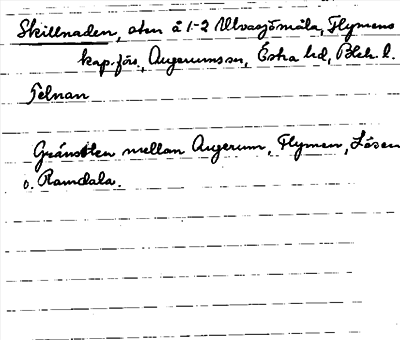 Skillnaden, sten å 1-2 Ulvasjömåla, Flymens
kap.förs., Augerums sn, Östra hd, Blek. l.
Felnan
Gränssten mellan Augerum, Flymen, Lösen
o. Ramdala.